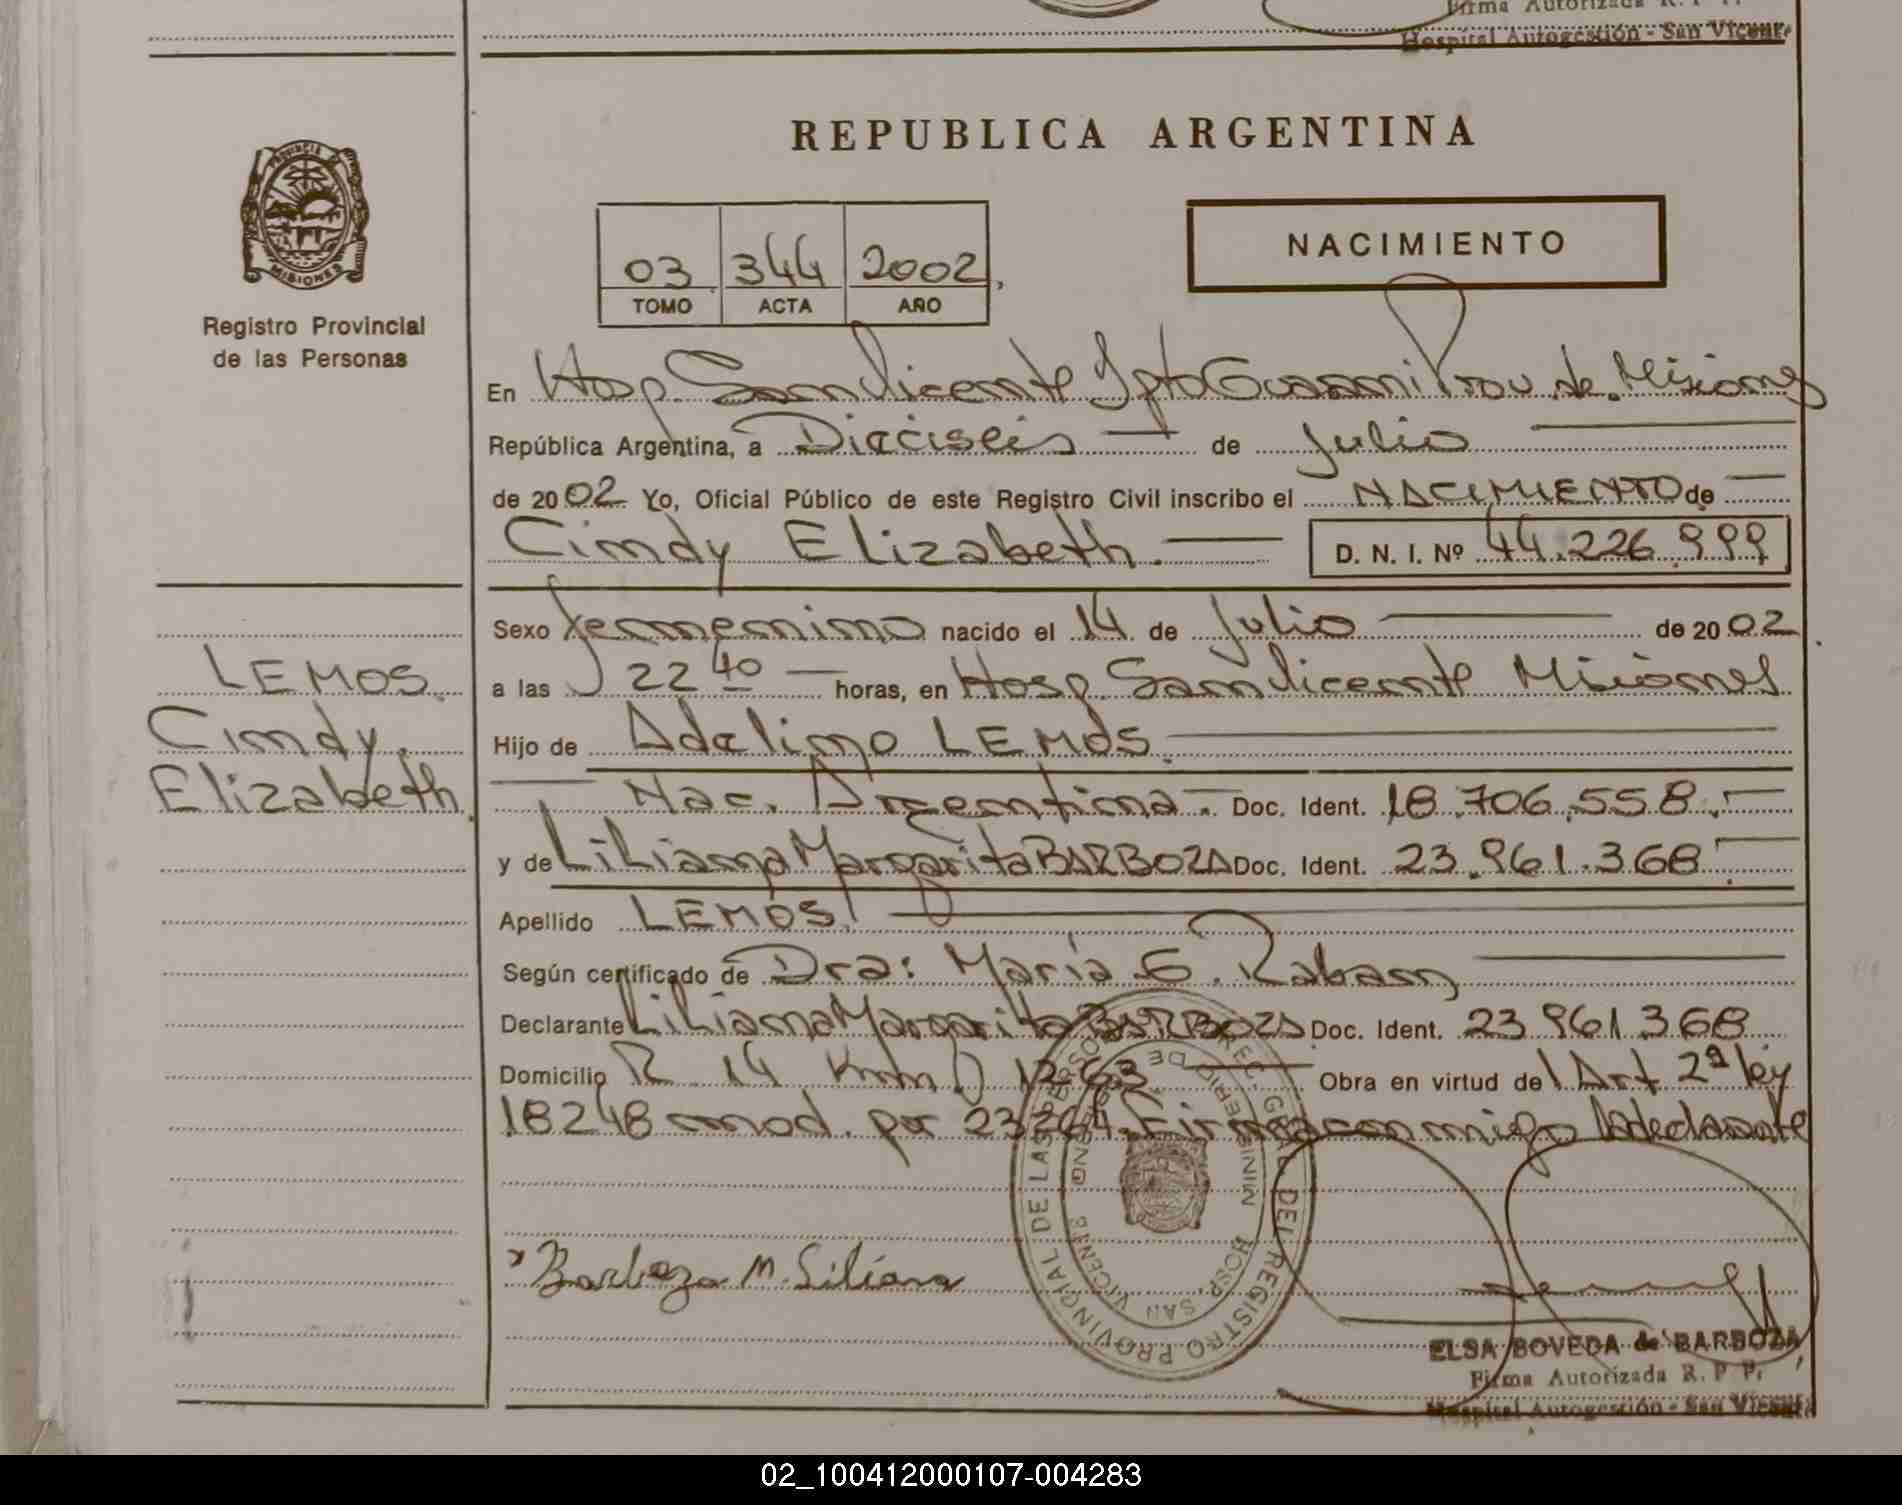 Firma Autorizada R. P P.
Hospital Autogestión - San Vicente
REPUBLICA ARGENTINA
PROVINCIA DE MISIONES
Registro Provincial
de las Personas
03 344 2002
TOMO ACTA AÑO
NACIMIENTO
En Hosp. San Vicente Dpto Guarani Prov. de Misiones
República Argentina, a Dieciseis de Julio
de 2002 Yo, Oficial Público de este Registro Civil inscribo el NACIMIENTO de
Cindy Elizabeth. D. N. I. Nº 44.226.999
Sexo femenino nacido el 14 de Julio de 2002
LEMOS
a las 22 40 horas, en Hosp. San Vicente Misiones
Cindy
Hijo de Adelino LEMOS.
Elizabeth.
Nac. Argentina. Doc. Ident. 18.706.558.
y de Liliana Margarita BARBOZA Doc. Ident. 23.961.368.
Apellido LEMOS
Según certificado de Dra: María E.
Declarante Liliana Margarita BARBOZA Doc. Ident. 23 961.368
Domicilio R 14 Km Obra en virtud del Art 2ª ley
18248 mod. por 23264. Firma conmigo la declarante
REGISTRO PROVINCIAL DE LAS PERSONAS
HOSP. SAN VICENTE
Barboza M. Liliana
ELSA BOVEDA de BARBOZA
Firma Autorizada R. P P.
Hospital Autogestión - San Vicente
02_100412000107-004283